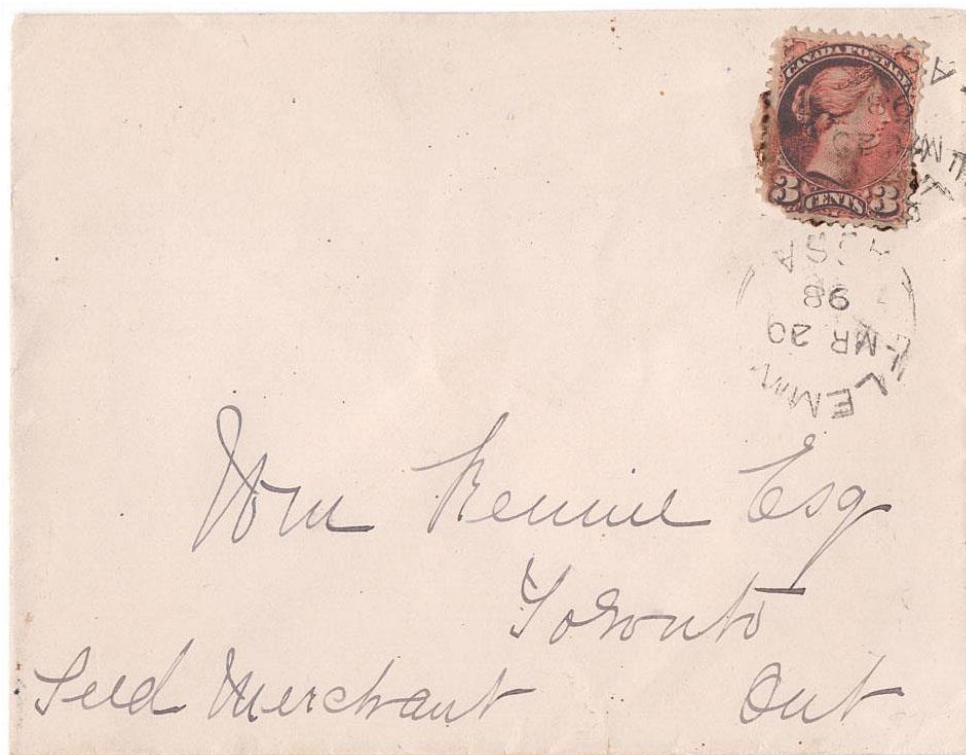 CANADA POSTAGE
3 CENTS 3
MR 20
98
Wm Rennie Esq
Toronto
Seed Merchant Ont